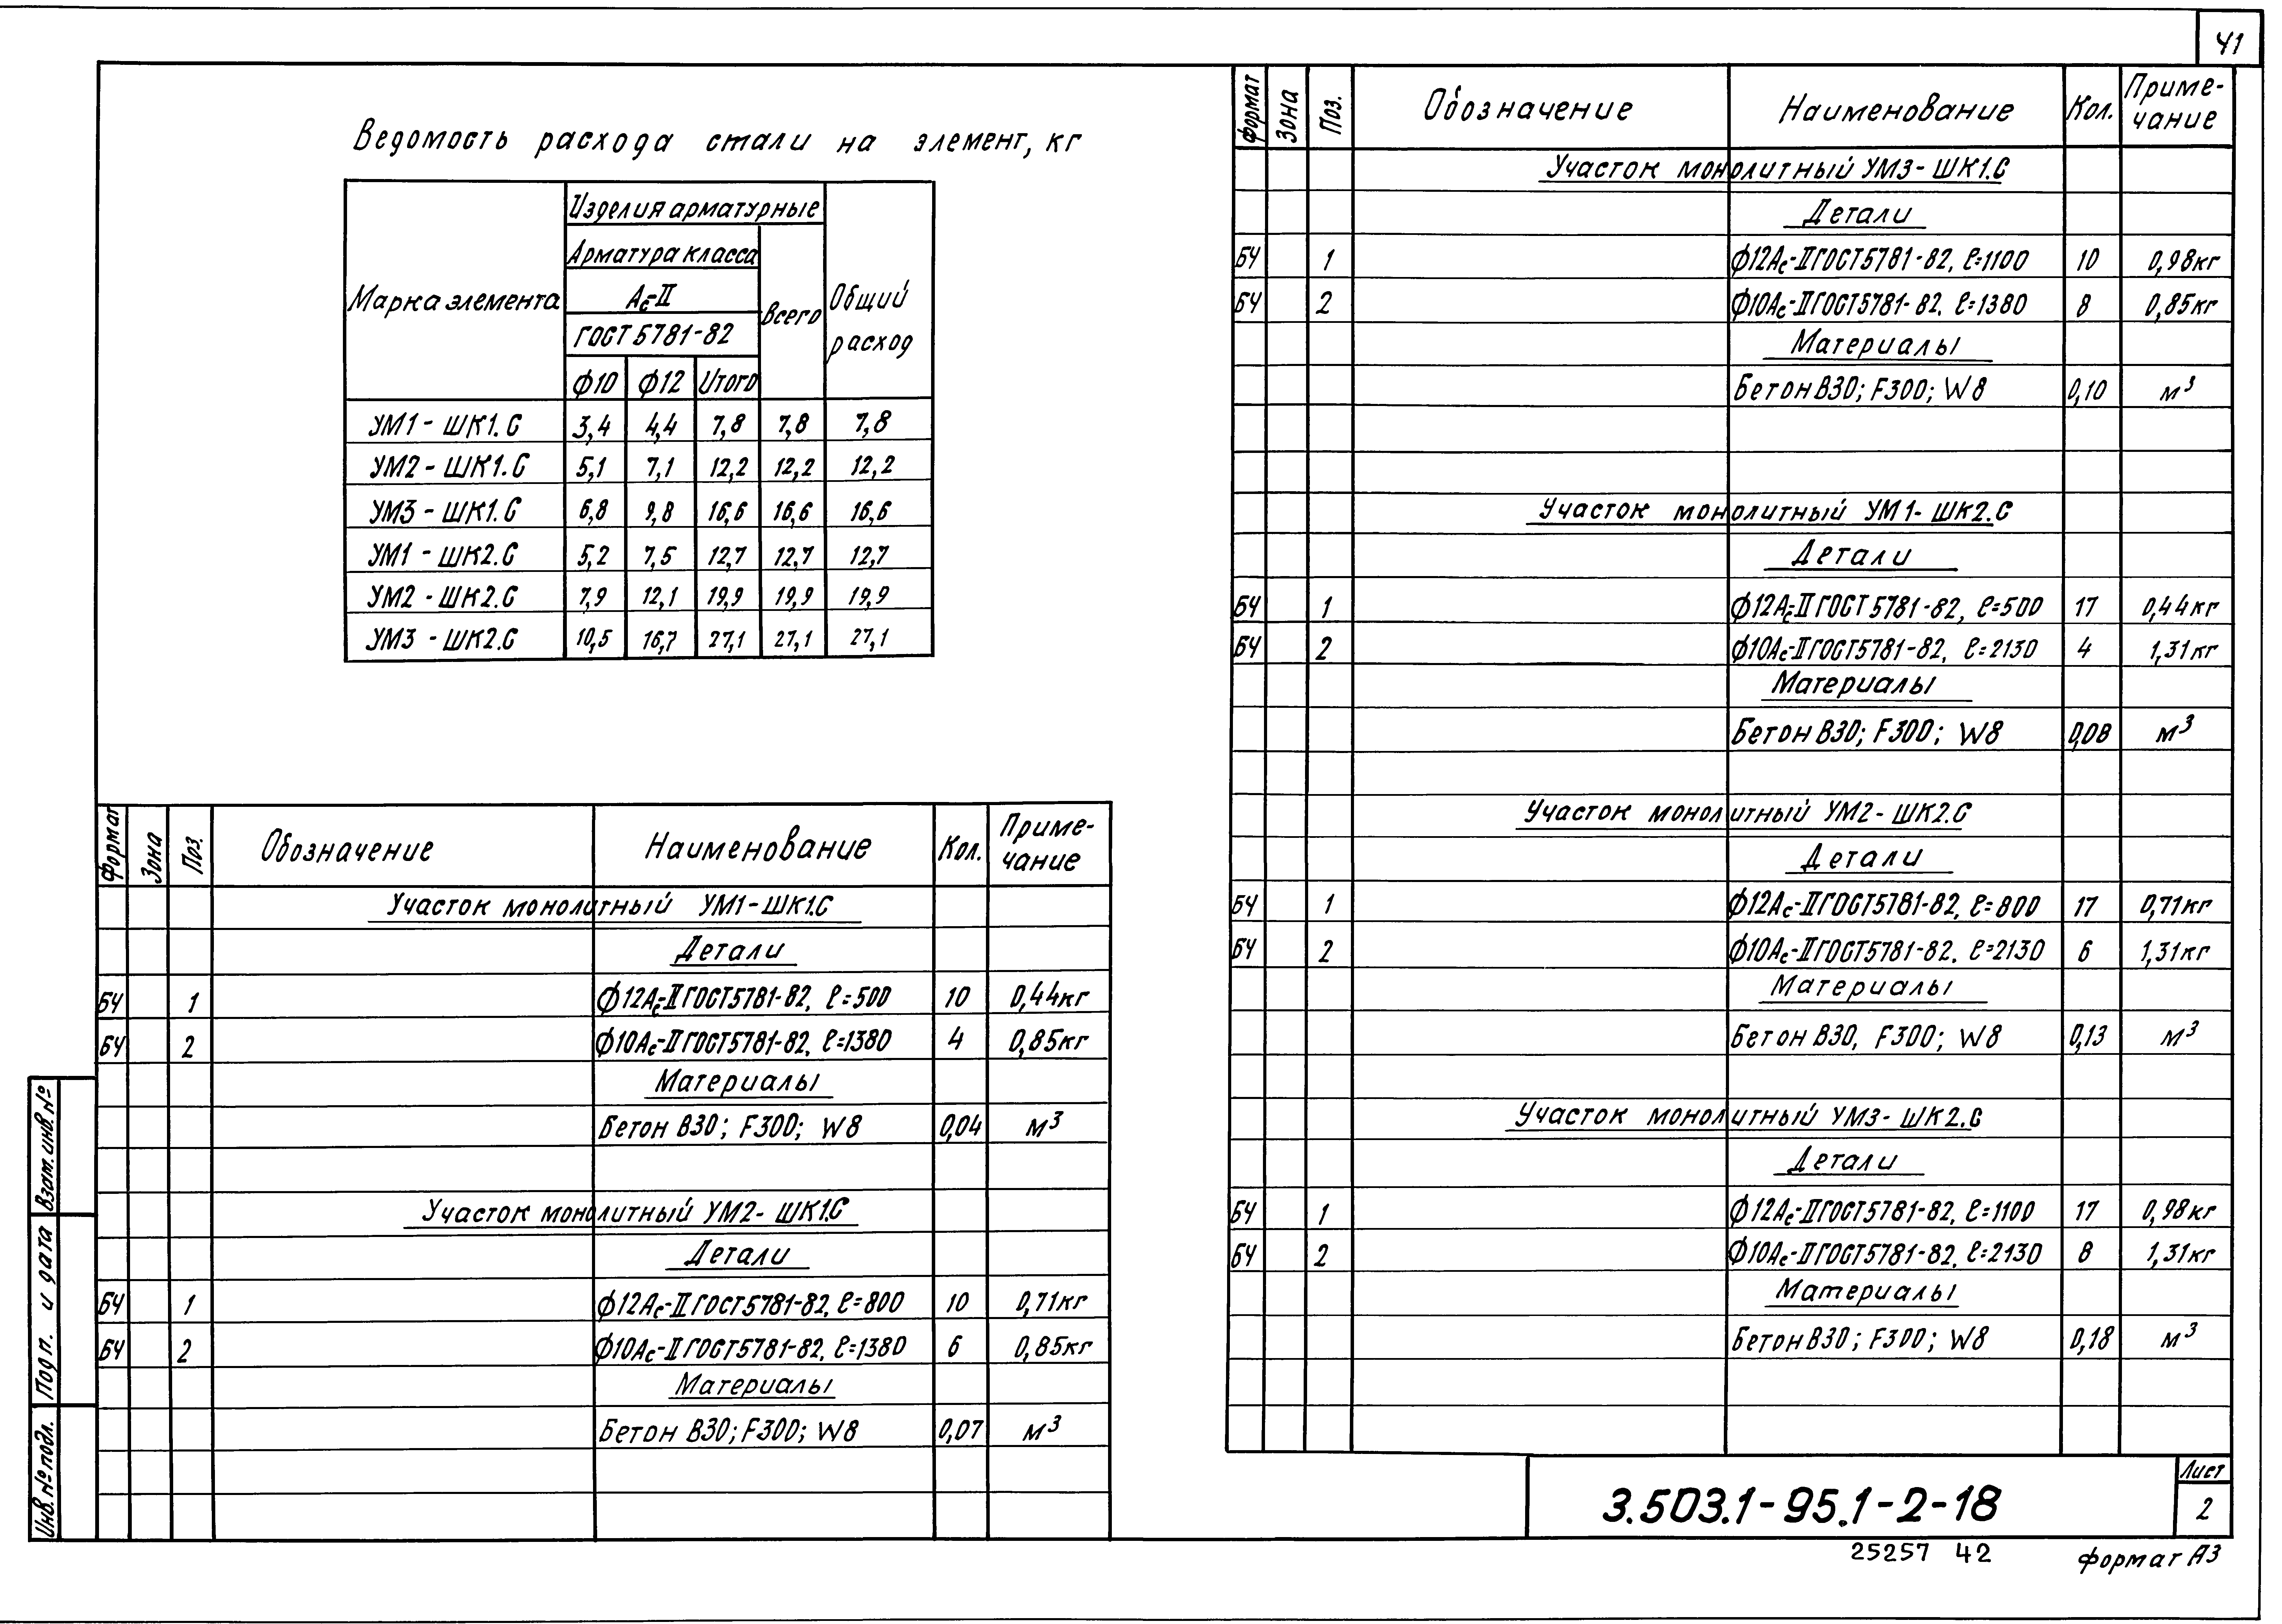 41
Ведомость расхода стали на элемент, кг
Марка элемента
Изделия арматурные
Арматура класса
Ас-II
ГОСТ 5781-82
Всего
Общий расход
Ф10 Ф12 Итого
УМ1-ШК1.С 3,4 4,4 7,8 7,8 7,8
УМ2-ШК1.С 5,1 7,1 12,2 12,2 12,2
УМ3-ШК1.С 6,8 9,8 16,6 16,6 16,6
УМ1-ШК2.С 5,2 7,5 12,7 12,7 12,7
УМ2-ШК2.С 7,9 12,1 19,9 19,9 19,9
УМ3-ШК2.С 10,5 16,7 27,1 27,1 27,1
Формат Зона Поз. Обозначение Наименование Кол. Приме-
чание
Участок монолитный УМ1-ШК1.С
Детали
БЧ 1 Ф12Ас-II ГОСТ5781-82, ℓ=500 10 0,44кг
БЧ 2 Ф10Ас-II ГОСТ5781-82, ℓ=1380 4 0,85кг
Материалы
Бетон В30; F300; W8 0,04 м³
Участок монолитный УМ2-ШК1.С
Детали
БЧ 1 Ф12Ас-II ГОСТ5781-82, ℓ=800 10 0,71кг
БЧ 2 Ф10Ас-II ГОСТ5781-82, ℓ=1380 6 0,85кг
Материалы
Бетон В30; F300; W8 0,07 м³
Формат Зона Поз. Обозначение Наименование Кол. Приме-
чание
Участок монолитный УМ3-ШК1.С
Детали
БЧ 1 Ф12Ас-II ГОСТ5781-82, ℓ=1100 10 0,98кг
БЧ 2 Ф10Ас-II ГОСТ5781-82, ℓ=1380 8 0,85кг
Материалы
Бетон В30; F300; W8 0,10 м³
Участок монолитный УМ1-ШК2.С
Детали
БЧ 1 Ф12Ас-II ГОСТ 5781-82, ℓ=500 17 0,44кг
БЧ 2 Ф10Ас-II ГОСТ5781-82, ℓ=2130 4 1,31кг
Материалы
Бетон В30; F300; W8 0,08 м³
Участок монолитный УМ2-ШК2.С
Детали
БЧ 1 Ф12Ас-II ГОСТ5781-82, ℓ=800 17 0,71кг
БЧ 2 Ф10Ас-II ГОСТ5781-82, ℓ=2130 6 1,31кг
Материалы
Бетон В30, F300; W8 0,13 м³
Участок монолитный УМ3-ШК2.С
Детали
БЧ 1 Ф12Ас-II ГОСТ5781-82, ℓ=1100 17 0,98кг
БЧ 2 Ф10Ас-II ГОСТ5781-82, ℓ=2130 8 1,31кг
Материалы
Бетон В30; F300; W8 0,18 м³
Взам. инв. №
Подп. и дата
Инв. № подл.
3.503.1-95.1-2-18
Лист
2
25257 42
Формат А3